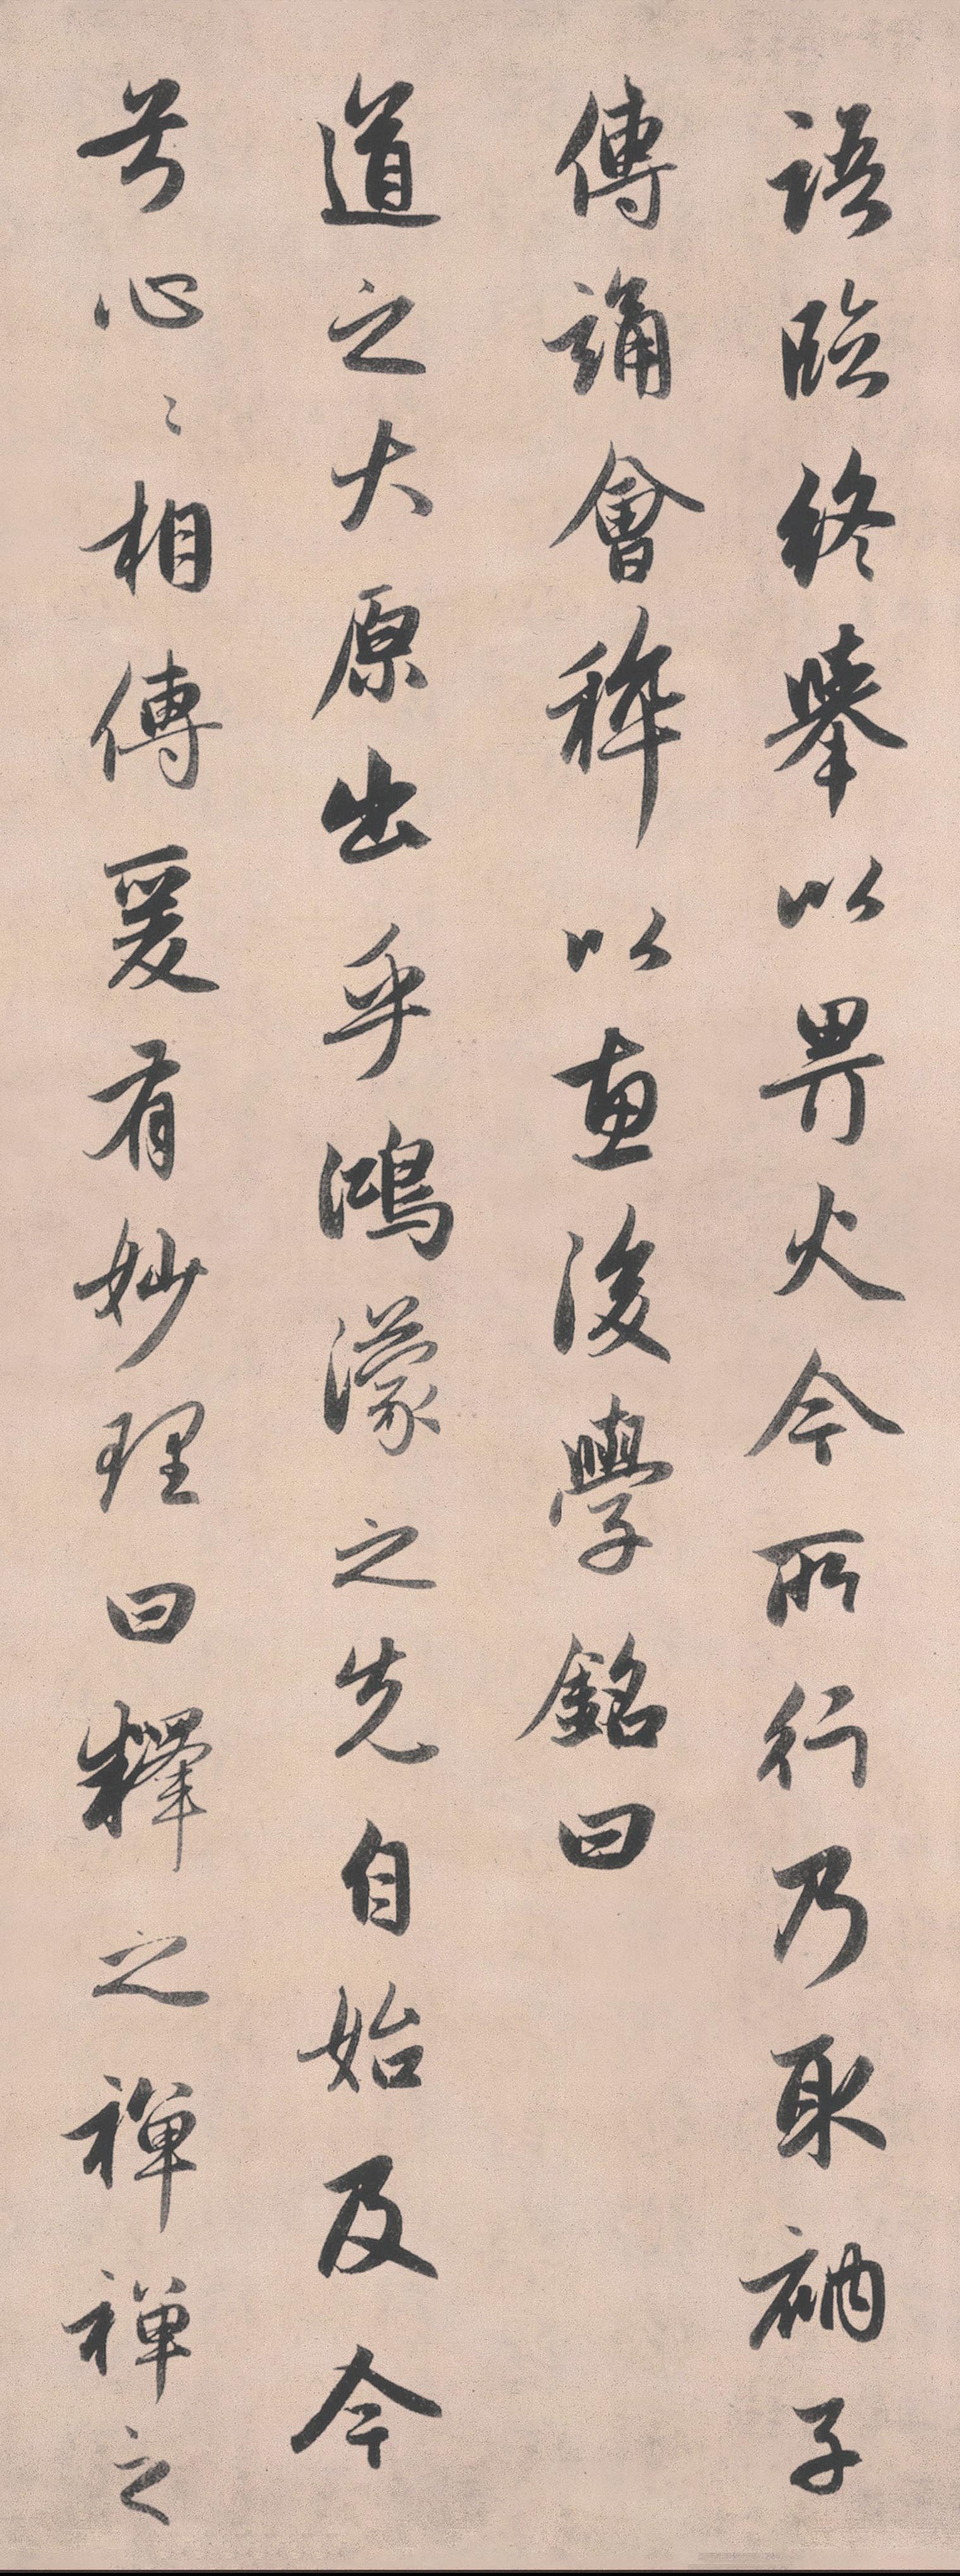 語臨終舉以畀火今所行乃取衲子
傳誦會稡以惠後學銘曰
道之大原出乎鴻濛之先自始及今
心〻相傳爰有妙理曰釋之禪禪之